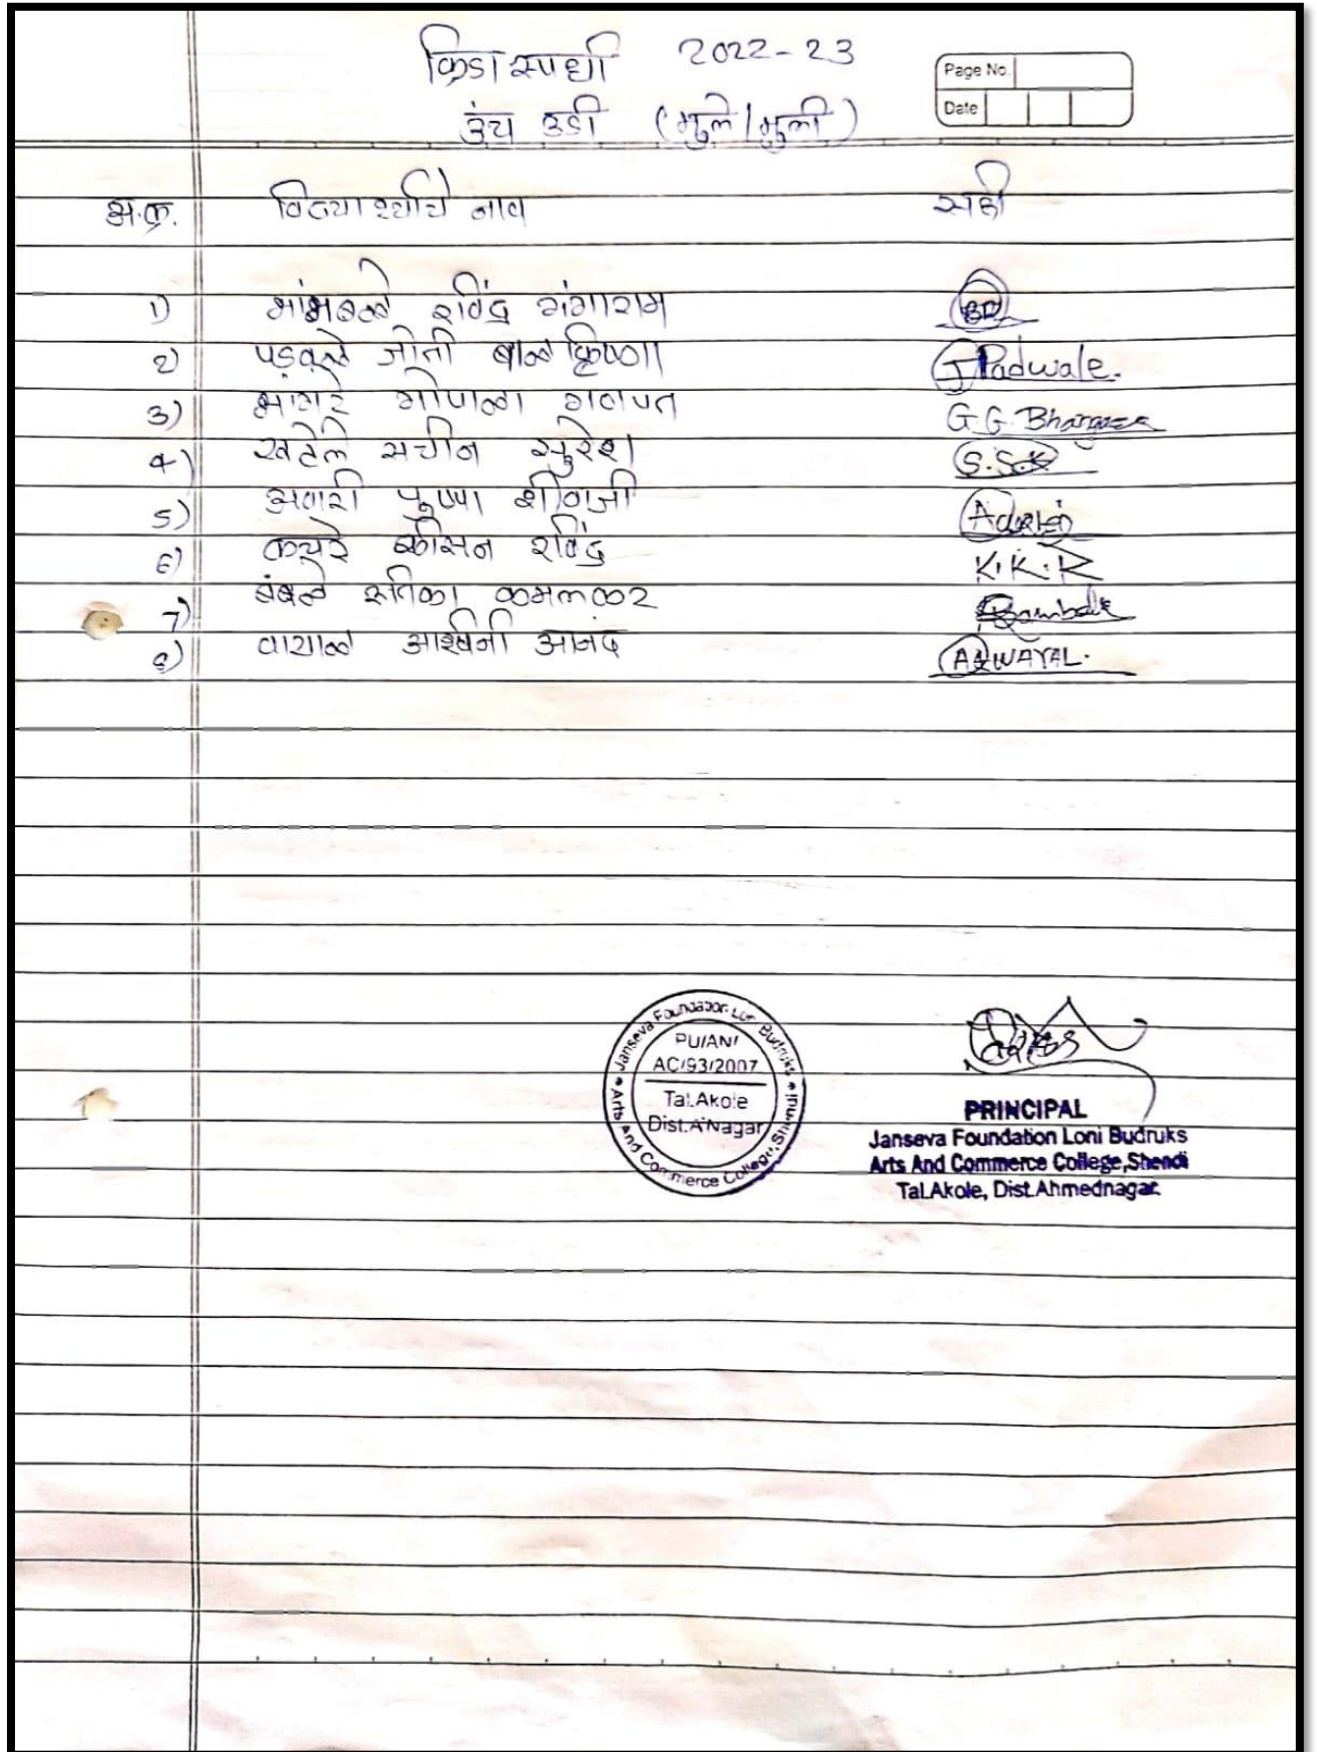 क्रिडा स्पर्धा 2022-23
Page No.
Date
उंच उडी (मुले/मुली)
अ.क्र. विद्यार्थ्याचे नाव सही
1) रविंद्र गंगाराम
2) पडवळे जोती बाळक्रिष्णा J Padwale.
3) भागरे गोपाळा गणपत G.G. Bhangare
4) खटेले सचीन सुरेश S.S.K
5) पुष्पा शीवाजी
6) कचरे कीसन रविंद्र K.K.R
7) बंबळे कमलाकर Bambale
8) वायाळ आश्विनी आनंद WAYAL.
Janseva Foundation Loni Budruks
Arts And Commerce College, Shendi
PU/AN/
AC/93/2007
Tal.Akole
Dist.A'Nagar
PRINCIPAL
Janseva Foundation Loni Budruks
Arts And Commerce College,Shendi
Tal.Akole, Dist.Ahmednagar.